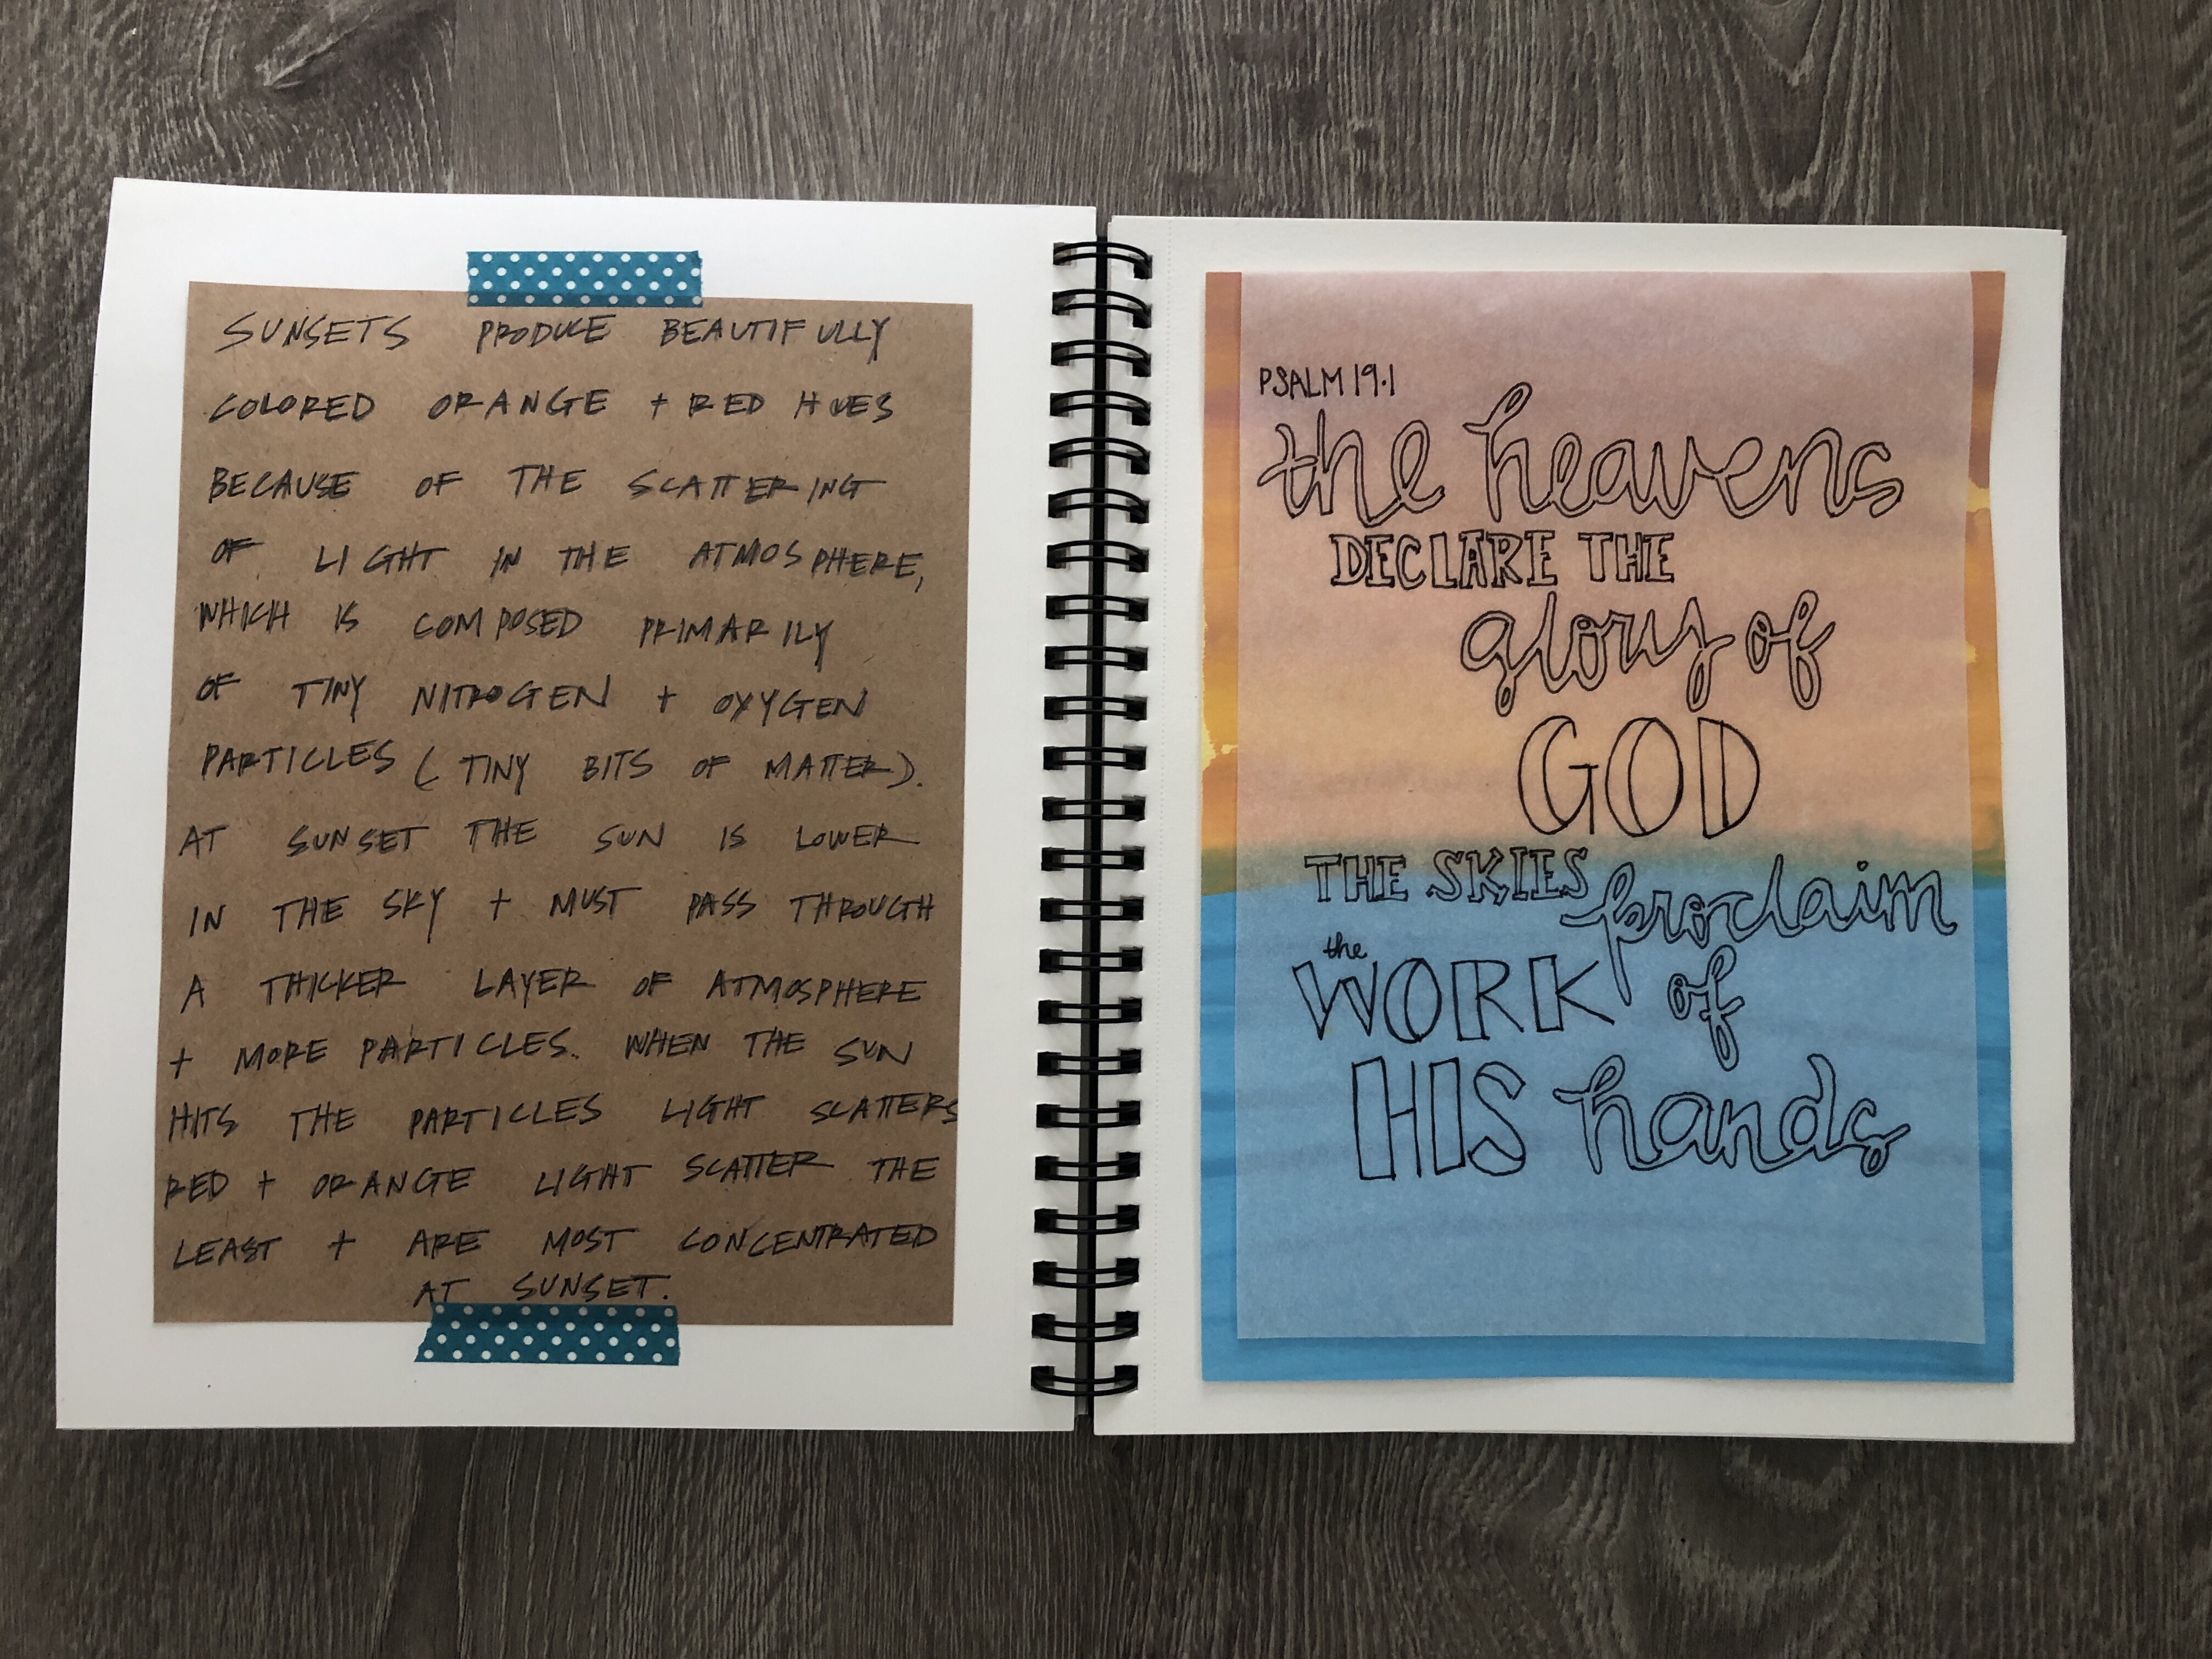 SUNSETS PRODUCE BEAUTIFULLY
COLORED ORANGE + RED HUES
BECAUSE OF THE SCATTERING
OF LIGHT IN THE ATMOSPHERE,
WHICH IS COMPOSED PRIMARILY
OF TINY NITROGEN + OXYGEN
PARTICLES (TINY BITS OF MATTER).
AT SUNSET THE SUN IS LOWER
IN THE SKY + MUST PASS THROUGH
A THICKER LAYER OF ATMOSPHERE
+ MORE PARTICLES. WHEN THE SUN
HITS THE PARTICLES LIGHT SCATTERS
RED + ORANGE LIGHT SCATTER THE
LEAST + ARE MOST CONCENTRATED
AT SUNSET.
PSALM 19.1
the heavens
DECLARE THE
glory of
GOD
THE SKIES proclaim
the
WORK of
HIS hands